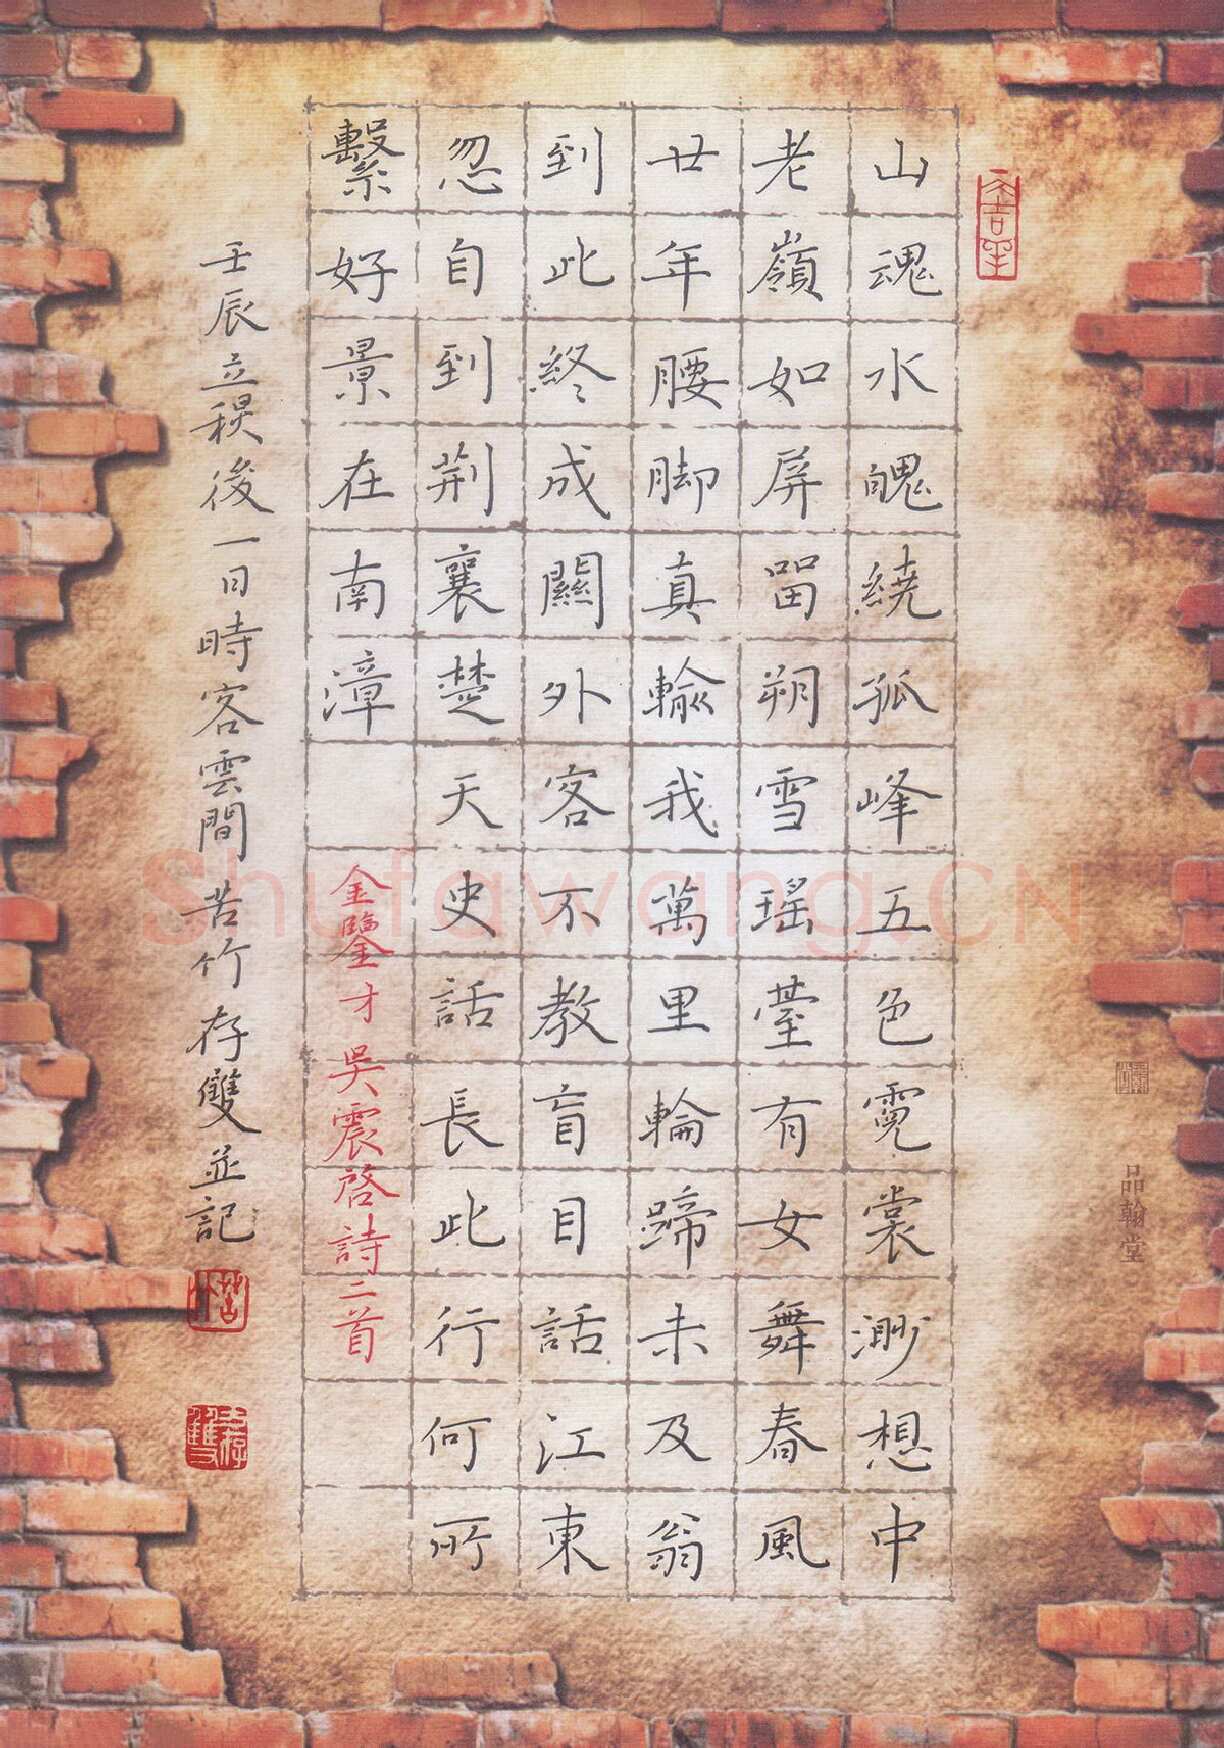 山魂水魄繞孤峰五色霓裳渺想中
老嶺如屏留朔雪瑤臺有女舞春風
廿年腰脚真輸我萬里輪蹄未及翁
到此終成關外客不教盲目話江東
忽自到荆襄楚天史話長此行何所
繫好景在南漳
金鑒才吳震啓詩二首
壬辰立秋後一日時客雲間苦竹存雙並記
品翰堂
Shufawang.CN